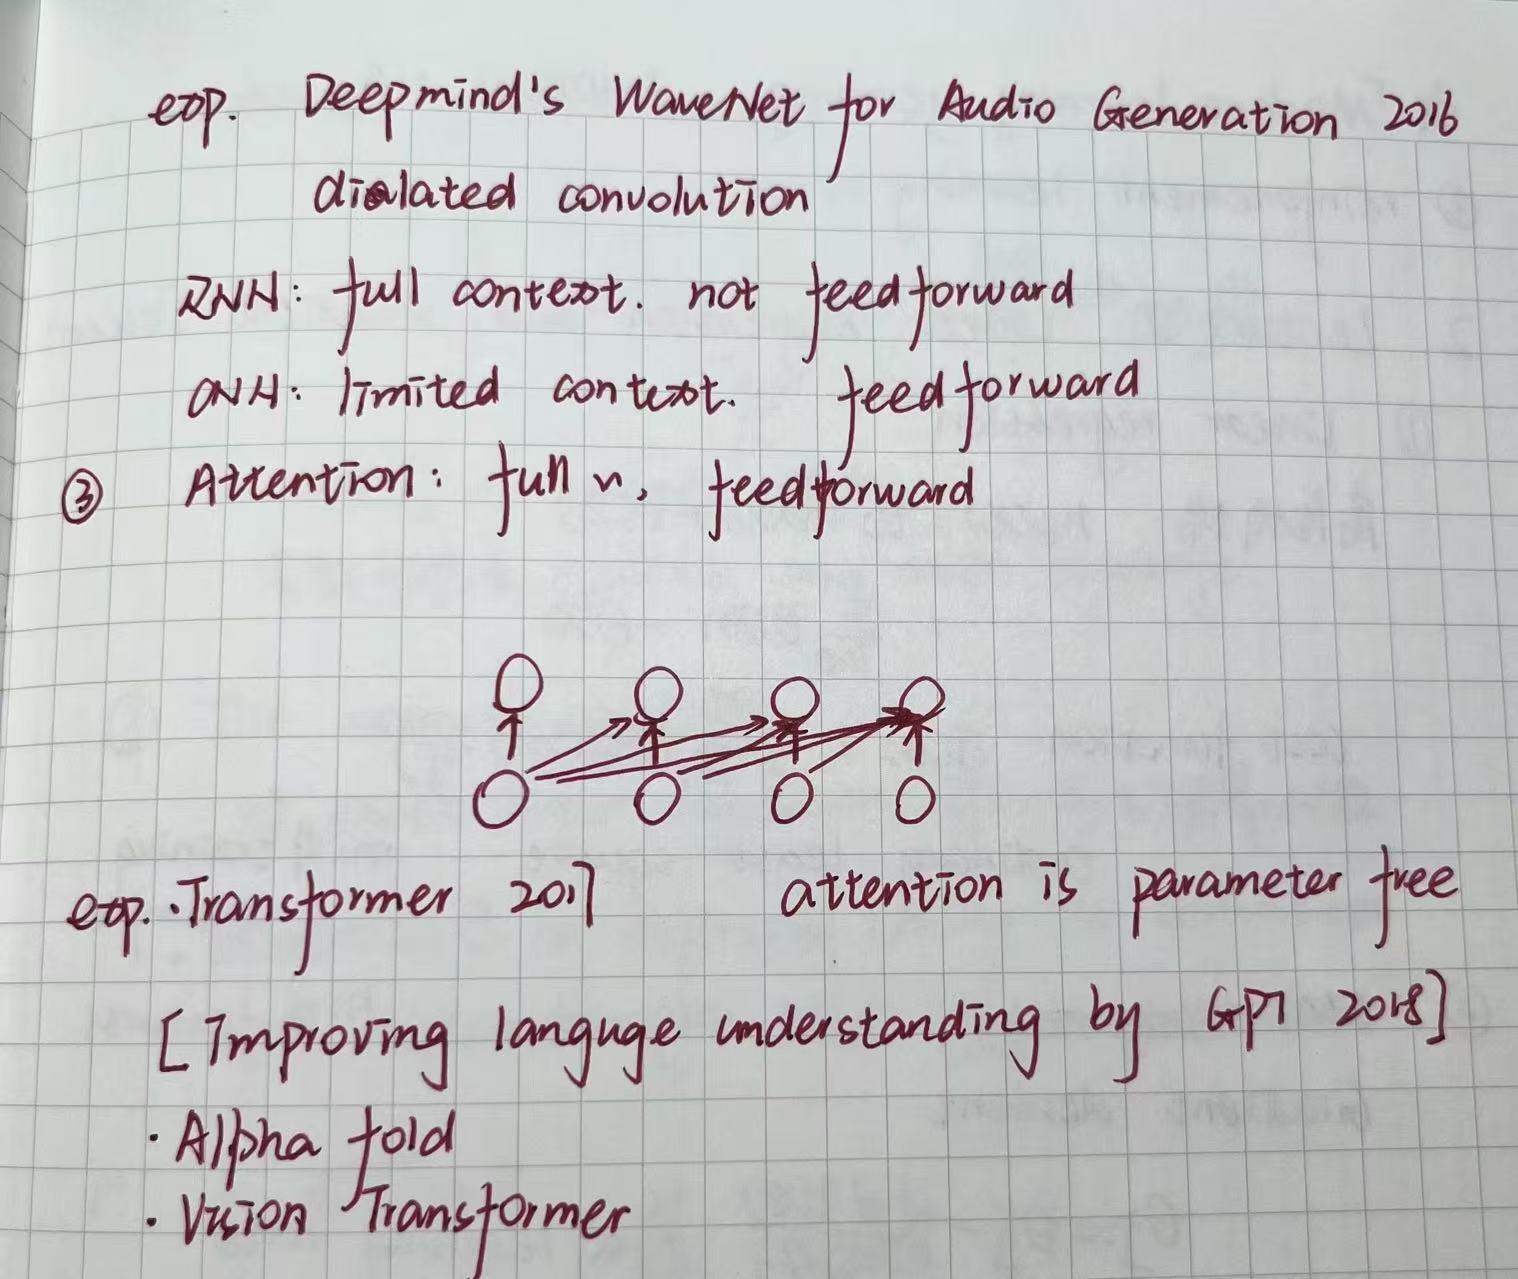 exp. Deepmind's WaveNet for Audio Generation 2016
dialated convolution
RNN: full context. not feedforward
CNN: limited context. feedforward
③ Attention: full ~, feedforward
exp. · Transformer 2017 attention is parameter free
[Improving languge understanding by GPT 2018]
· Alpha fold
· Vision Transformer